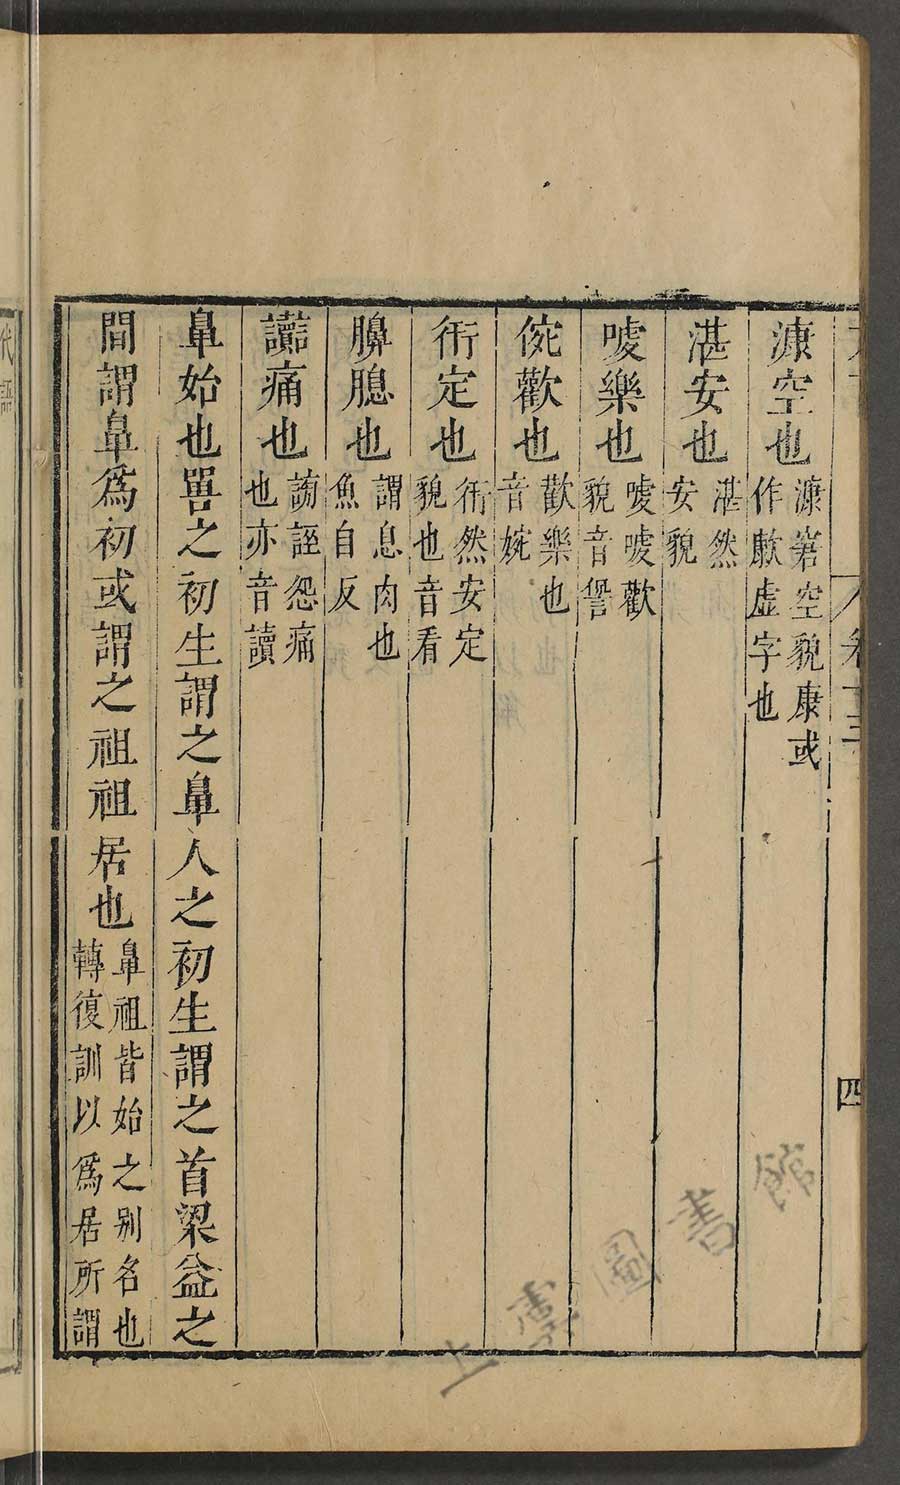 漮空也漮窘空貌康或作歑虛字也
湛安也湛然安貌
嘜樂也嘜嘜歡貌音譽
㑌歡也歡樂也音婉
衎定也衎然安定貌也音看
膞䐣也謂息肉也魚自反
讟痛也謗誣怨痛也亦音讀
鼻始也嘼之初生謂之鼻人之初生謂之首梁益之
間謂鼻爲初或謂之祖祖居也鼻祖皆始之別名也轉復訓以爲居所謂
四
上虞圖書館